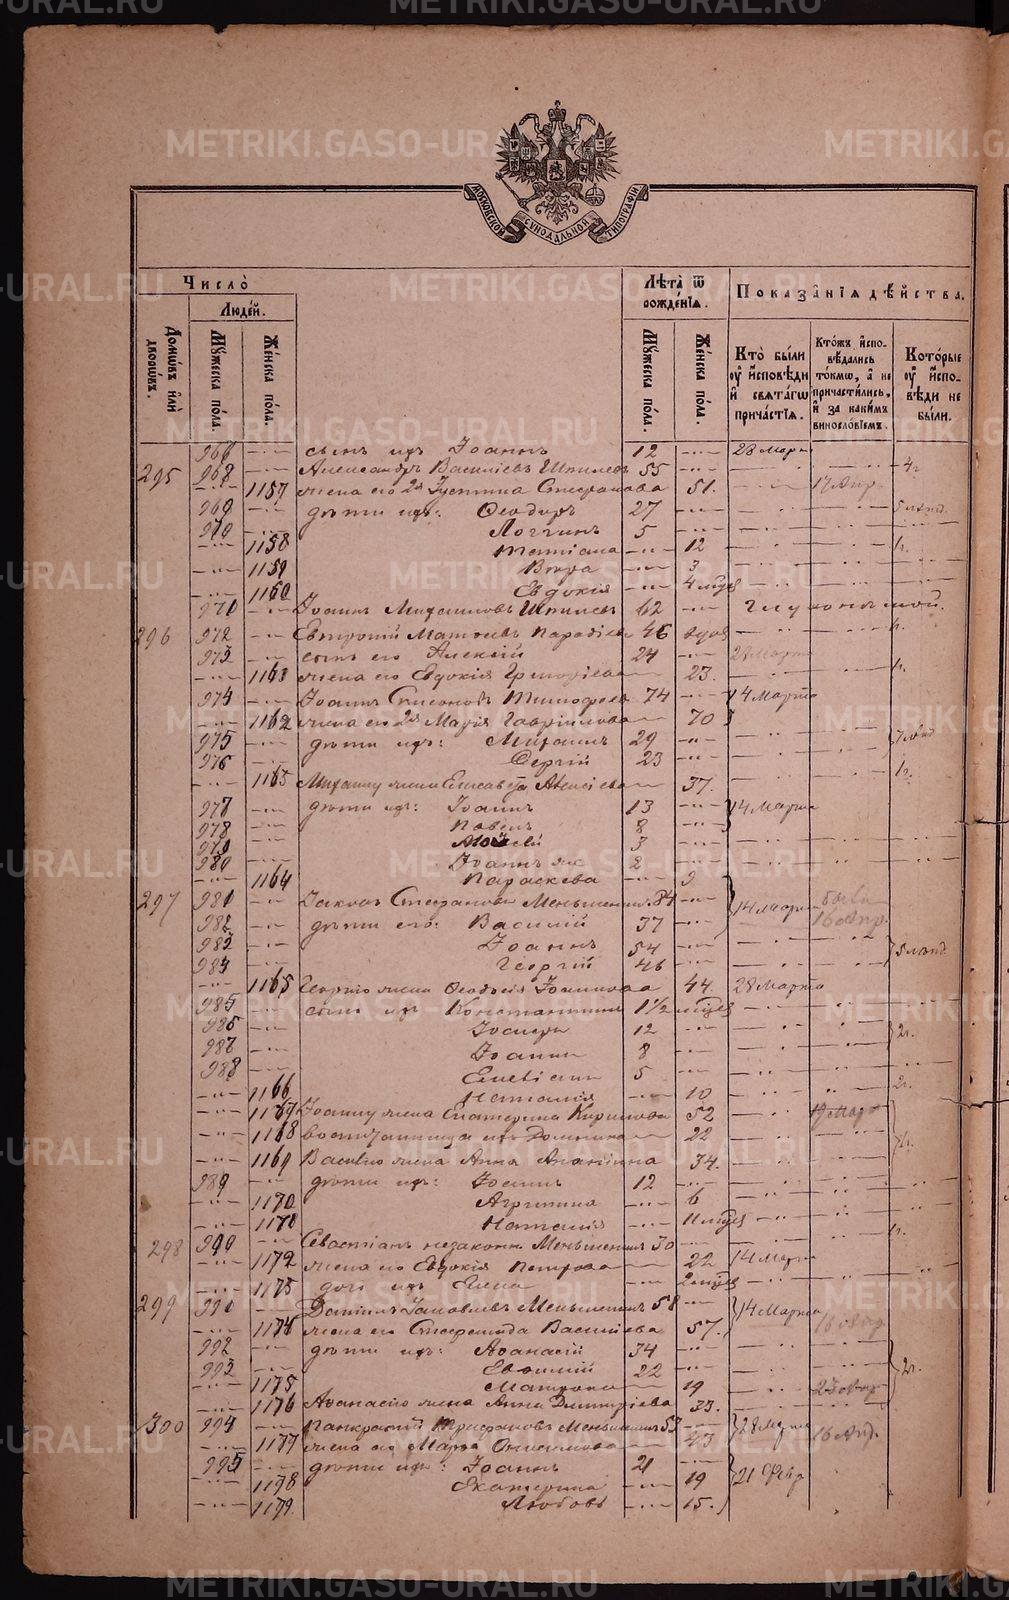 METRIKI.GASO-URAL.RU
МОСКОВСКОЙ СѴНОДАЛЬНОЙ ТИПОГРАФІИ
Число̀
Людѐй.
Домѡ́въ и҆лѝ дворѡ́въ.
Мꙋ́жеска по́ла.
Же́нска по́ла.
Лѣ́та ѿ рожде́нїѧ.
Мꙋ́жеска по́ла.
Же́нска по́ла.
Показа̑нїѧ дѣ́йства.
Кто̀ бы́ли оу҆ и҆сповѣ́ди и҆ свѧта́гѡ прича́стїѧ.
Кто́жъ и҆спо-вѣ́дались то́кмѡ, а҆ не причасти́лись, и҆ за каки́мъ винослові́емъ.
Кото́рые оу҆ и҆спо-вѣ́ди не бы́ли.
сынъ ихъ Іоаннъ 12 28 Март
295 968 Александръ Василіевъ Шпилевъ 55
1157 жена его 2я Іустина Стефанова 51. 17 Апр
969 дѣти ихъ: Ѳеодоръ 27
Логгинъ 5
1158 Татіана 12
1159 Вѣра 3
1160 Евдокія 4 мцев
971 Іоаннъ Михаиловъ Шпилевъ 62 глухонѣмой.
296 972 Евтропій Матѳеевъ 46 вдов
973 сынъ его Алексій 24 28 Марта
жена его Евдокія Григоріева 23.
974 Іоаннъ Тимофеевъ 74 14 Марта
1162 жена его 2я Марія Гавріилова 70
975 дѣти ихъ: Михаилъ 29
976 Сергій 23
1163 Михаилу жена Елисавета 37.
977 дѣти ихъ: Іоаннъ 13 14 Марта
978 Павелъ 8
Моисей 3
980 Іоаннъ 2
1164 Параскева 9
297 981 Іаковъ Стефановъ Меньшенинъ 84 14 Марта 16 Апр.
982 дѣти его: Василій 37
983 Іоаннъ 54
984 Георгій 46
1165 Георгію жена Ѳеодосія Іоаннова 44. 28 Марта
985 сынъ ихъ Константинъ 1½ мцев
986 Іосифъ 12
987 Іоаннъ 8 2г.
988 5
1166 Наталія 10 2г.
1167 Іоанну жена Екатерина Кирилова 52 19 Март
1168 воспитанница ихъ Домника 22
1169 Василію жена Анна Ананіина 34.
989 дѣти ихъ: Іоаннъ 12
1170 Агрипина 6
1171 Наталія 11 мцев
298 990 Севастіанъ незаконн. Меньшенинъ 30
1172 жена его Евдокія Петрова 22 14 Марта
1173 дочь ихъ Елена 2 мцев
299 991 Даніилъ Меньшенинъ 58 14 Марта 16 Апр
1174 жена его Степанида Василіева 57.
992 дѣти ихъ: Аѳанасій 34
993 Евѳимій 22 2г.
1175 Матрона 19 23 Апр
1176 Аѳанасію жена Анна Димитріева 33.
300 994 Панкратій Трифоновъ Меньшенинъ 53 28 Марта 16 Апр.
1177 жена его Марѳа Онисимова 43
995 дѣти ихъ: Іоаннъ 21
1178 Екатерина 19 21 Февр
1179 Любовь 15.